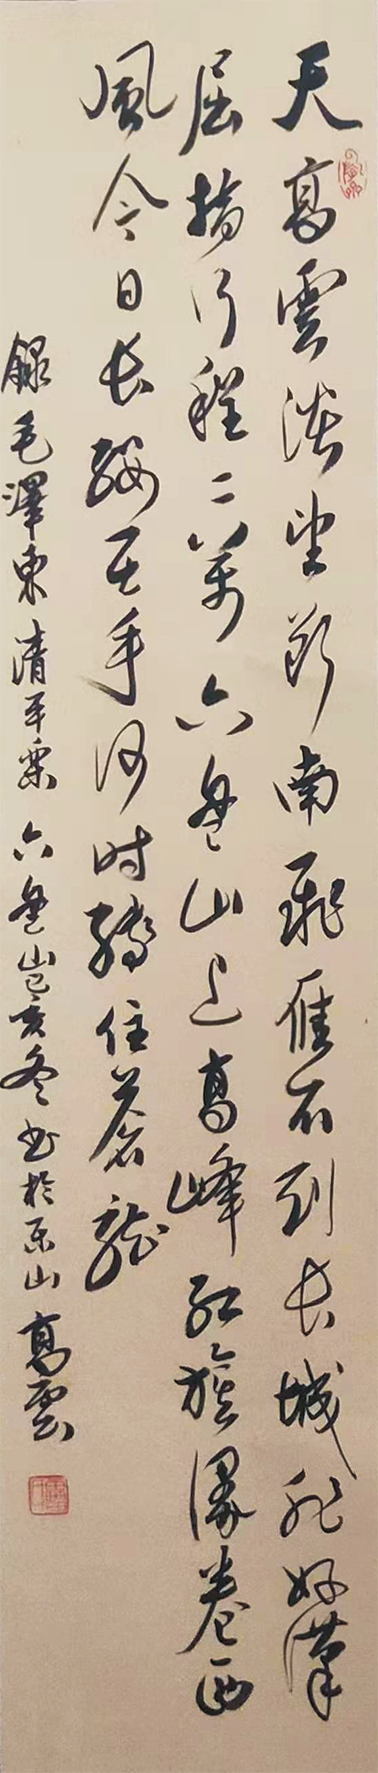 天高雲淡望斷南飛雁不到長城非好漢
屈指行程二萬六盤山上高峰紅旗漫卷西
風今日長纓在手何時縛住蒼龍
錄毛澤東清平樂六盤山己亥冬書於樂山高雲